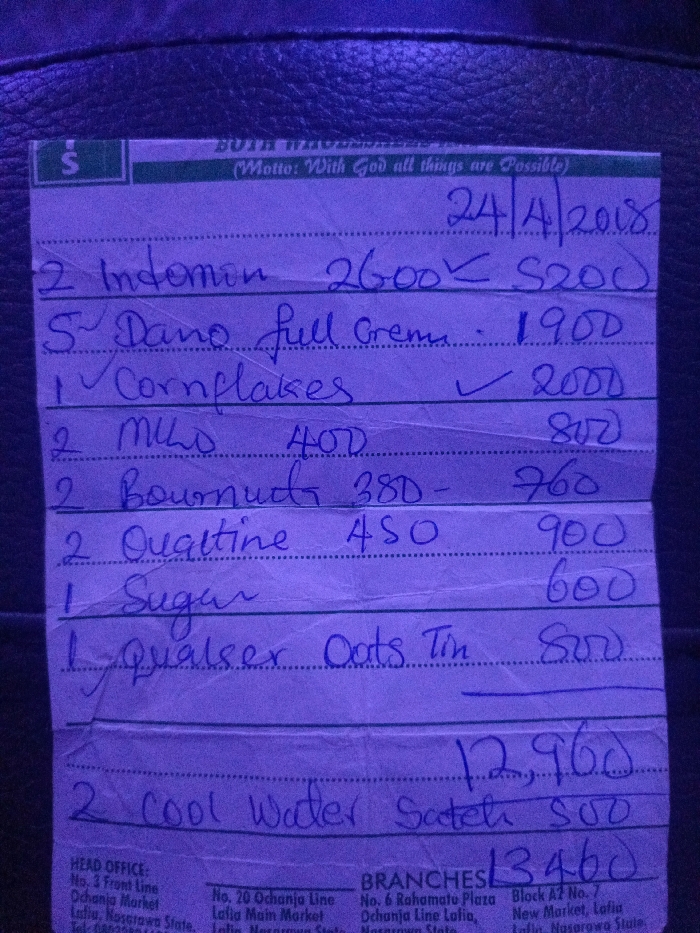 S
(Motto: With God all things are Possible)
24/4/2018
2 Indomin 2600 ✓ 5200
5 ✓ Dano full Crem. 1900
1 ✓ Cornflakes ✓ 2000
2 Milo 400 800
2 Bournvita 380- 760
2 Ovaltine 450 900
1 Sugar 600
1 Quaker Oats Tin 800
12,960
2 Cool Water Satch 500
13460
HEAD OFFICE:
No. 3 Front Line
Ochanja Market
Lafia, Nasarawa State.
No. 20 Ochanja Line
Lafia Main Market
Lafia, Nasarawa State.
BRANCHES
No. 6 Rahamatu Plaza
Ochanja Line Lafia,
Nasarawa State
Block A2 No. 7
New Market, Lafia
Lafia, Nasarawa State.